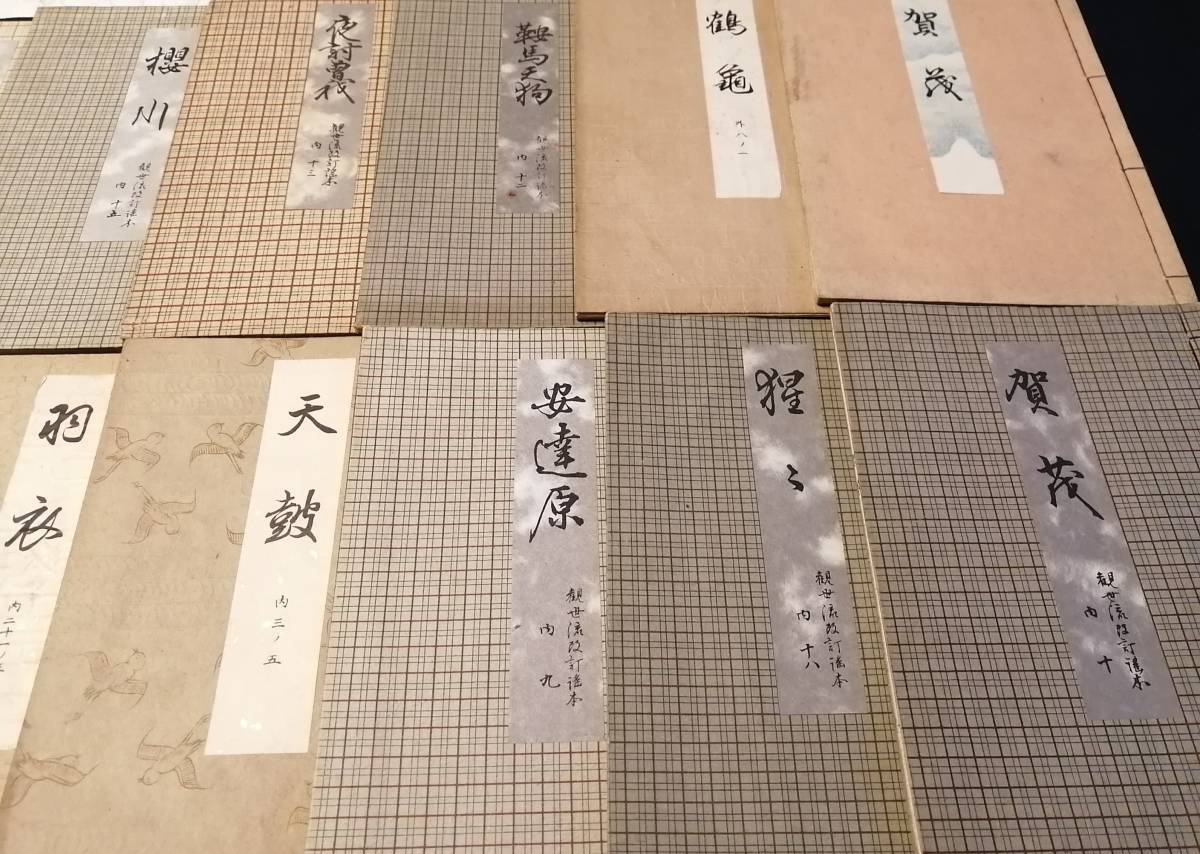 櫻川
観世流改訂謡本
内 十五
夜討曽我
観世流改訂謡本
内 十三
鞍馬天狗
観世流改訂謡本
内 十二
鶴亀
外八ノ一
賀茂
羽衣
天鼓
内三ノ五
安達原
観世流改訂謡本
内 九
猩〻
観世流改訂謡本
内 十八
賀茂
観世流改訂謡本
内 十